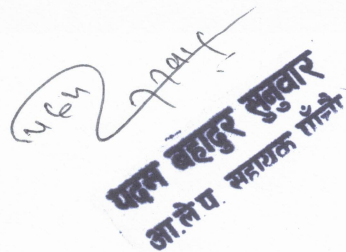 पदम बहादुर सुनुवार
आ.ले.प. सहायक पाँचौ